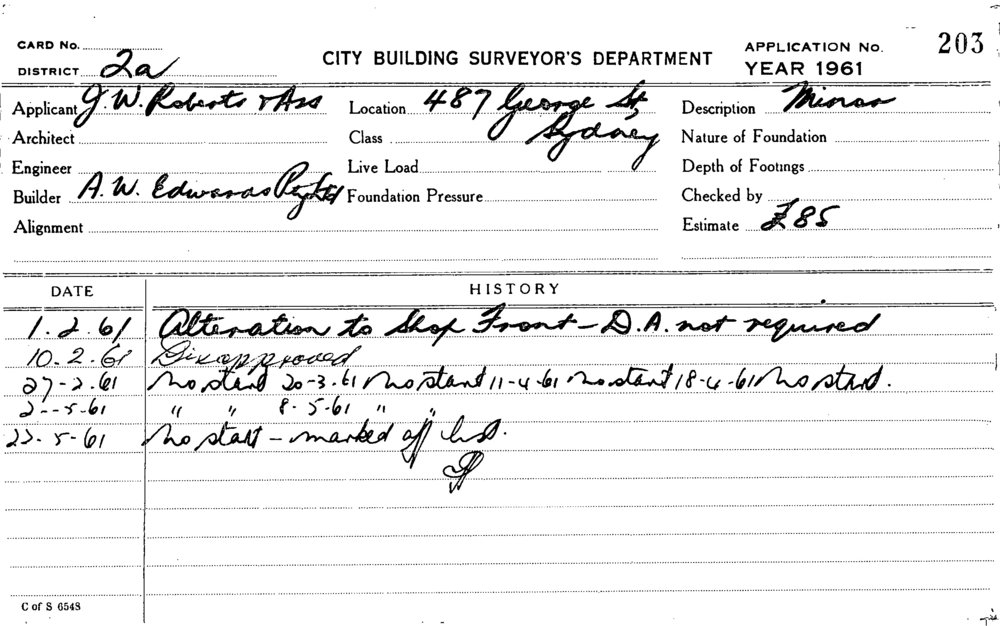 CARD No.
DISTRICT 2a
CITY BUILDING SURVEYOR'S DEPARTMENT
APPLICATION No. 203
YEAR 1961
Applicant J. W. Roberts & Ass
Location 487 George St,
Sydney
Description Minor
Architect
Class
Nature of Foundation
Engineer
Live Load
Depth of Footings
Builder A. W. Edwards Pty Ltd
Foundation Pressure
Checked by
Alignment
Estimate £85
DATE HISTORY
1.2.61 Alteration to Shop Front - D.A. not required
10.2.61 Disapproved
27-2.61 No start 20-3.61 No start 11-4-61 No start 18-4-61 No start.
2--5-61 " " 8-5-61 " "
23-5-61 No start - marked off list.
C of S 6548